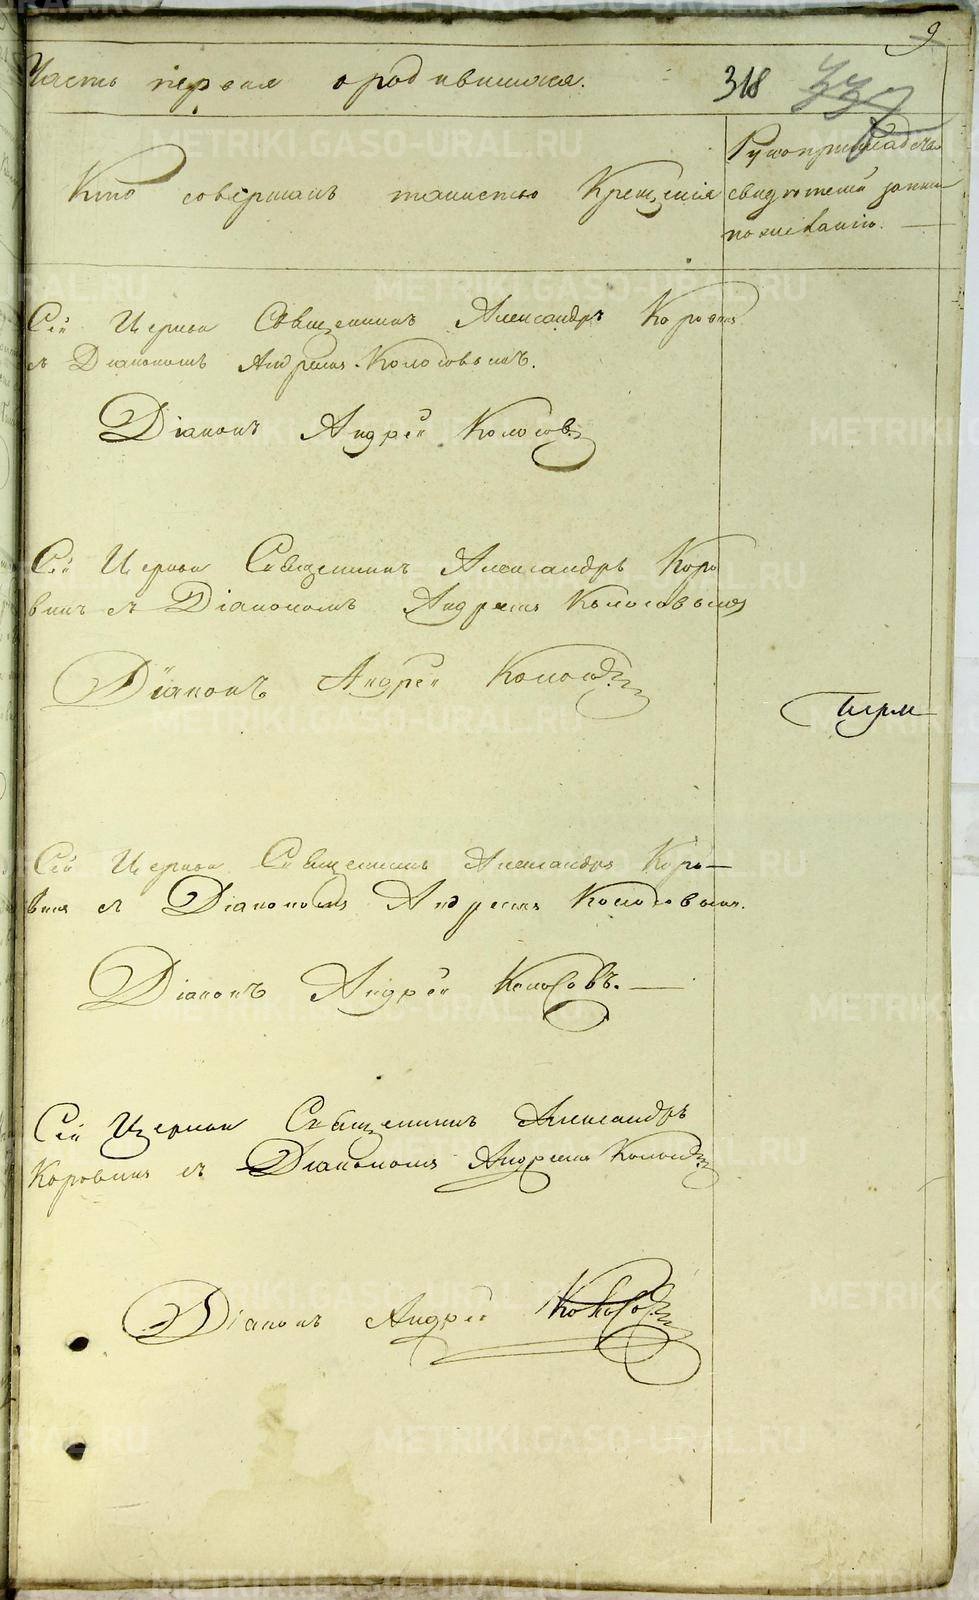 9
Часть первая о родившихся. 318
Кто совершалъ таинство Крещенія
Рукоприкладство
свидѣтелей записи
по желанію.
Сей Церкви Священникъ Александръ Коровинъ
съ Діакономъ Андреемъ Колосовымъ.
Діаконъ Андрей Колосовъ
Сей Церкви Священникъ Александръ Коро
винъ съ Діакономъ Андреемъ Колосовымъ
Діаконъ Андрей Колосовъ
Сей Церкви Священникъ Александръ Коро-
винъ съ Діакономъ Андреемъ Колосовымъ.
Діаконъ Андрей Колосовъ.
Сей Церкви Священникъ Александръ
Коровинъ съ Діакономъ Андреемъ Колосовымъ
Діаконъ Андрей Колосовъ
METRIKI.GASO-URAL.RU